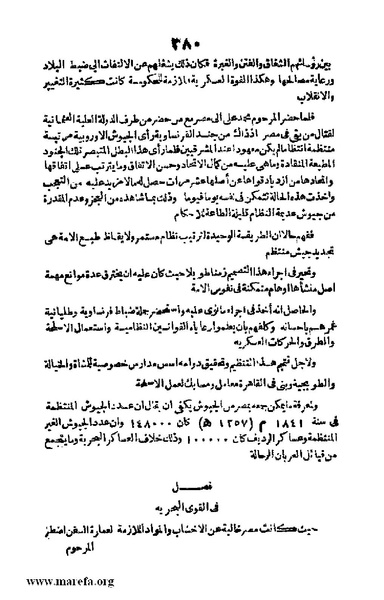 ٣٨٠
بين رؤسائهم الشقاق والفتن والغيرة فكان ذلك يشغلهم عن الالتفات الى ضبط البلاد
ورعاية مصالحها وهكذا القوة العسكرية الملازمة للحكومة كانت كثيرة التغيير
والانقلاب
فلما حضر المرحوم محمد على الى مصر مع من حضر من طرف الدولة العلية العثمانية
لقتال من بقى فى مصر اذ ذاك من جند الفرنساوية رأى الجيوش الاوروبية مرتبة
منتظمة انتظاما لم يكن معهودا عند المشرقيين فلما رأى هذا البطل المتبصر تلك الجنود
المطيعة المنقادة وما هى عليه من كمال الاتحاد وحسن الاتفاق وما يترتب على اتفاقها
واتحادها من ازدياد قواها عن أصلها عشر مرات حصل له ما لا مزيد عليه من التعجب
وأخذت هذه الحالة تتمكن فى نفسه يوما فيوما وذلك بمشاهدته من العجز وعدم المقدرة
من جيوش عديمة النظام قليلة الطاعة للاحكام
ففهم حالا ان الطريقة الوحيدة لترتيب نظام مستمر ولايقاظ طبع الامة هى
تجديد جيش منتظم
وتحير فى اجراء هذا التصميم زمنا طويلا حيث كان عليه ان يخترق عدة موانع مهمة
اصل منشأها اوهام متمكنة فى نفوس الامة
والحاصل انه أخذ فى اجراء ما نوى عليه واستحضر جملة ضباط فرنساوية وطليانية
غمرهم باحسانه وكلفهم بان يعلموا رعاياه القوانين النظامية واستعمال الاسلحة
والطرق والحركات العسكرية
ولاجل تتميم هذا التنظيم وتحقيق دوامه اسس مدارس خصوصية للمشاة والخيالة
والطوبجية وبنى فى القاهرة معامل ومسابك لعمل الاسلحة
ولمعرفة ما يمكن جمعه بمصر من الجيوش يكفى ان يقال ان عدد الجيوش المنتظمة
فى سنة ١٨٤١ م (١٢٥٧ هـ) كان ١٤٨٠٠٠ وان عدد الجيوش الغير
المنتظمة وعساكر الرديف كان ١٠٠٠٠٠ وذلك خلاف العساكر البحرية وما يتجمع
من قبائل العربان الرحالة
فصل
فى القوى البحرية
حيث كانت مصر خالية عن الاخشاب والمواد اللازمة لعمارة السفن اضطر
المرحوم
www.marefa.org